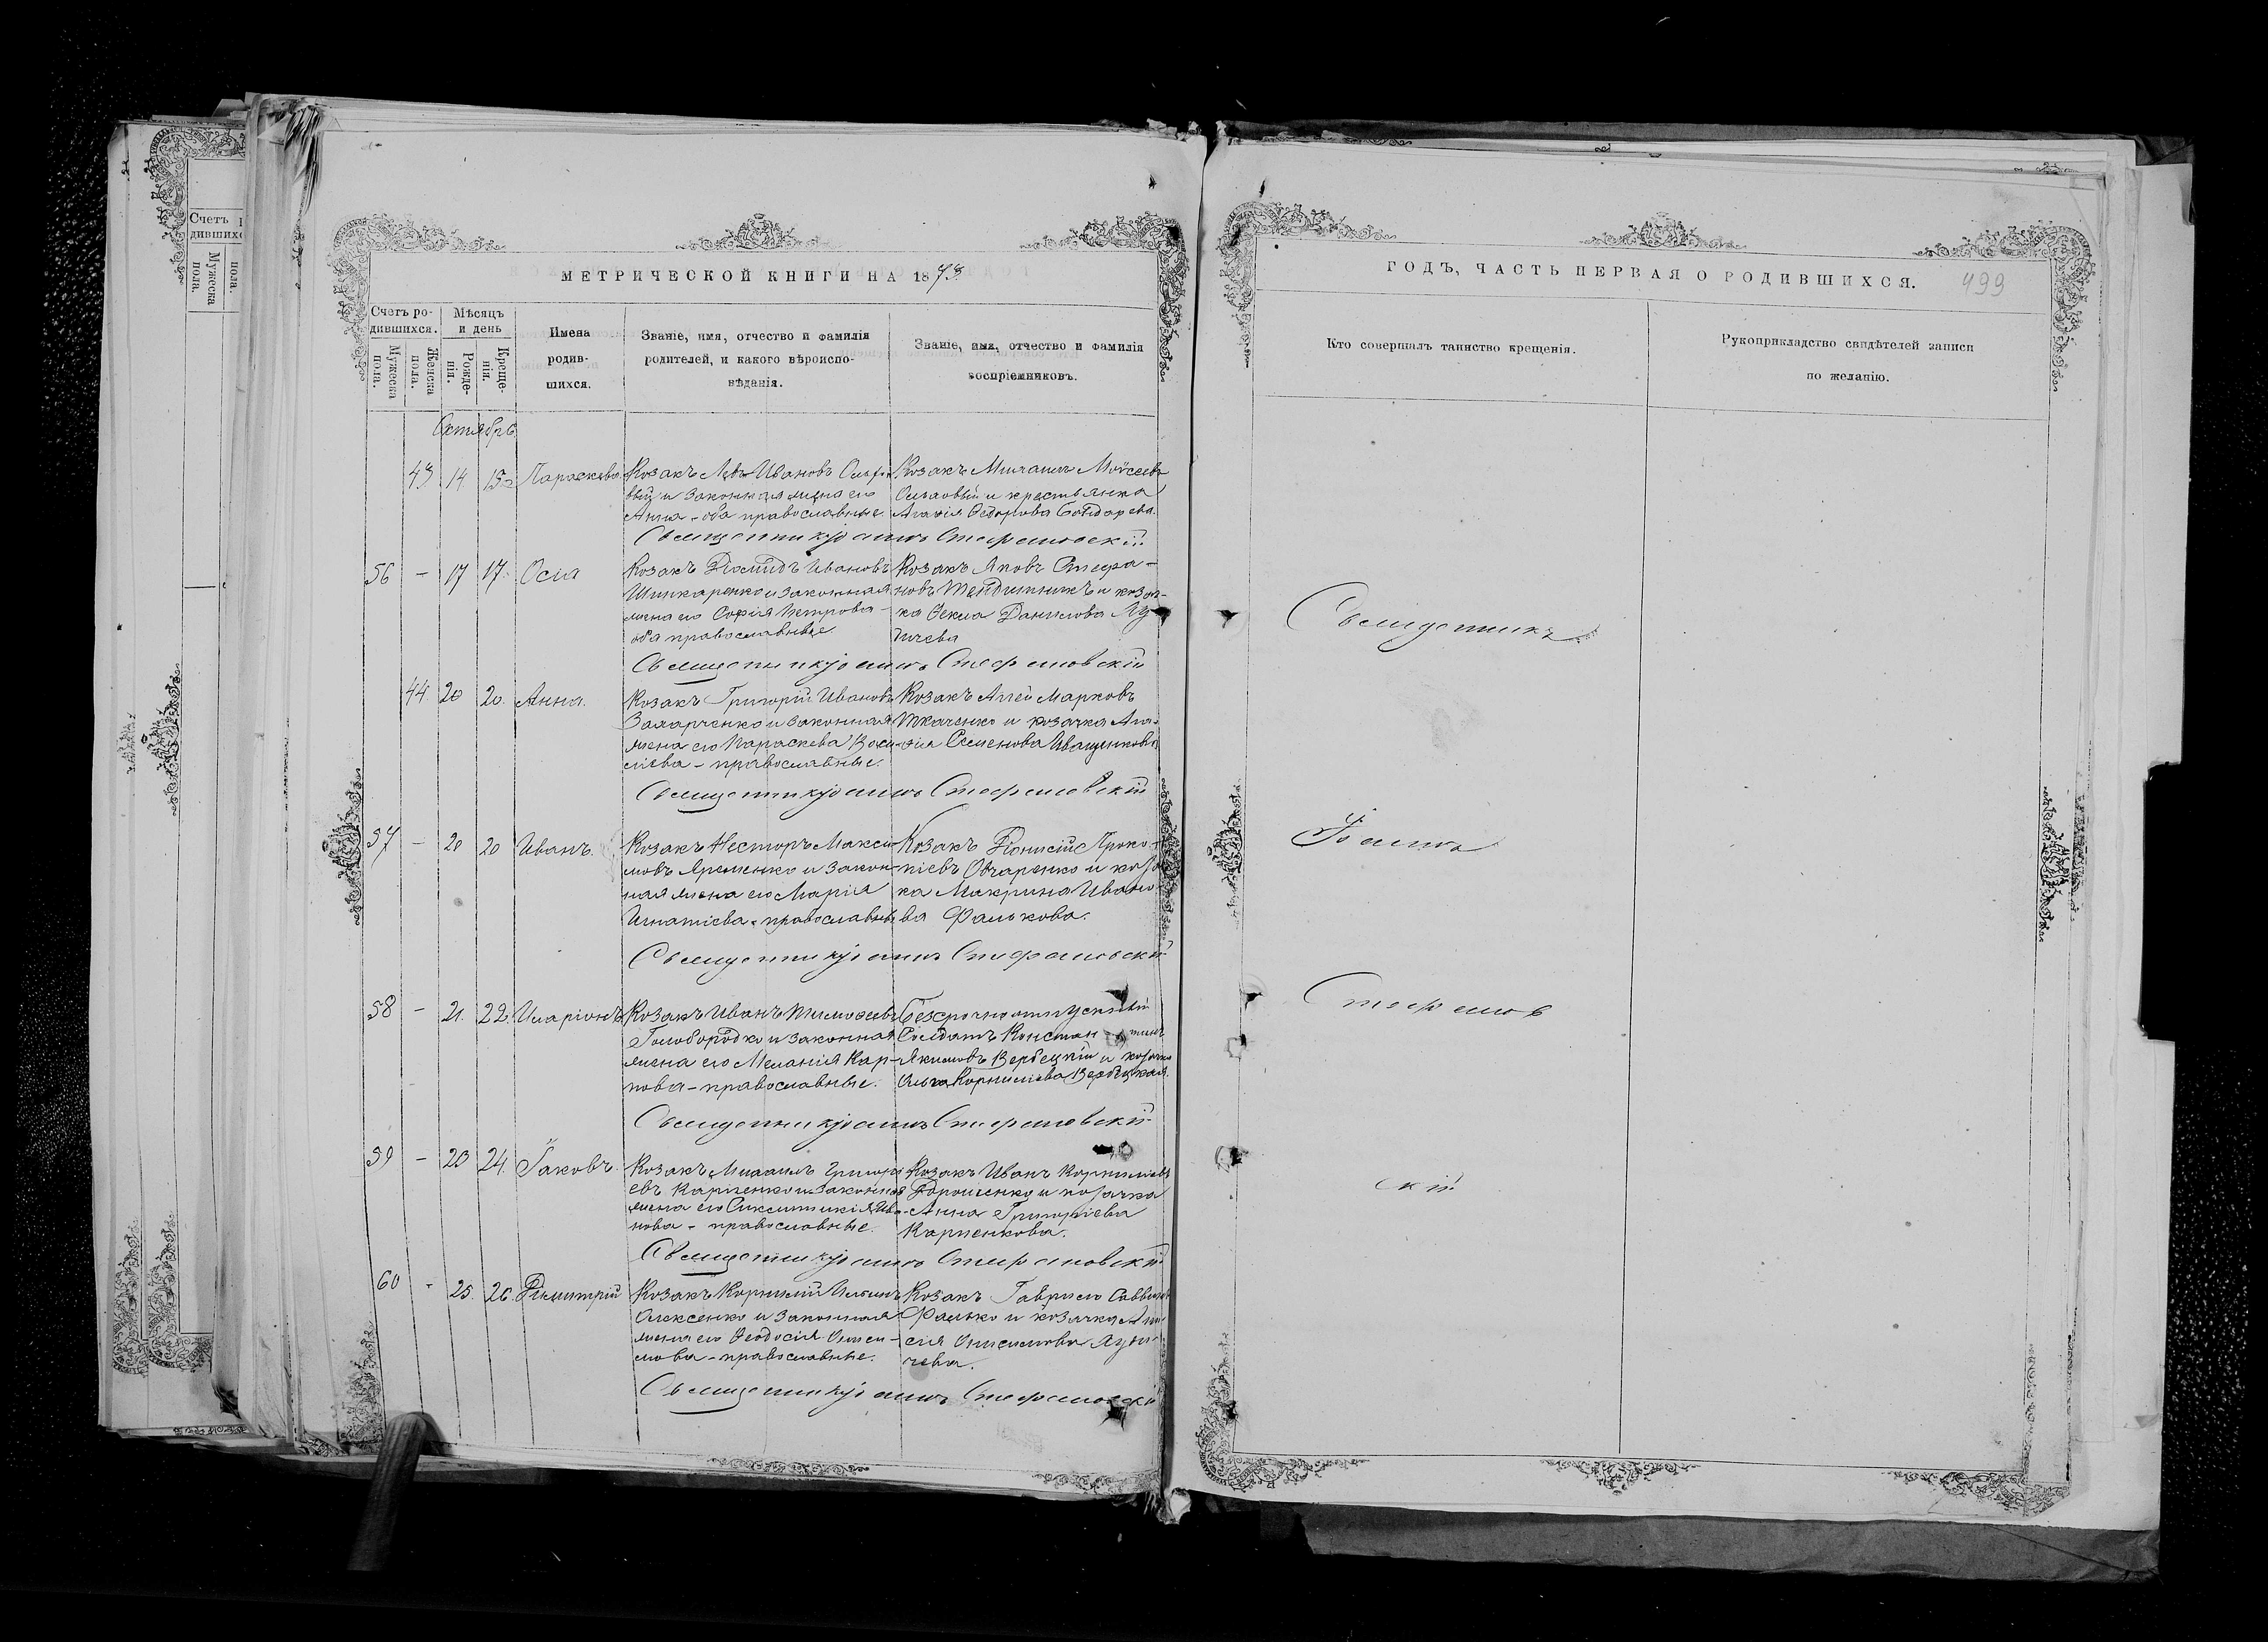 МЕТРИЧЕСКОЙ КНИГИ НА 1873
Счетъ ро-
дившихся.
Мужеска пола.
Женска пола.
Мѣсяцъ
и день
Рожде-
нія.
Креще-
нія.
Имена
родив-
шихся.
Званіе, имя, отчество и фамилія
родителей, и какого вѣроиспо-
вѣданія.
Званіе, имя, отчество и фамилія
воспріемниковъ.
Октябрь
43 14 15 Параскева
Козакъ Левъ Ивановъ
и законная жена его
Анна - оба православные.
Козакъ Михаилъ Мойсеевъ
и крестьянка
Агафія Ѳедорова Бондарева.
Священникъ Іоаннъ Стефановскій
56 - 17 17. Осія
Козакъ Діомидъ Ивановъ
Шинкаренко и законная
жена его Софія Петрова -
оба православные
Козакъ Яковъ Стефа-
новъ и козач-
ка Ѳекла Данилова Лу-
ничева
Священникъ Іоаннъ Стефановскій
44. 20 20. Анна.
Козакъ Григорій Ивановъ
Захарченко и законная
жена его Параскева Васи-
ліева - православные.
Козакъ Алсей Марковъ
Ткаченко и козачка Ага-
ѳія Семенова Иващенкова
Священникъ Іоаннъ Стефановскій
57 - 20 20 Иванъ.
Козакъ Несторъ Макси-
мовъ Яременко и закон-
ная жена его Марія
Игнатіева - православные
Козакъ Діонисій Проко-
піевъ Овчаренко и козач-
ка Макрина Ивано-
ва Фалькова.
Священникъ Іоаннъ Стефановскій
58 - 21. 22. Иларіонъ
Козакъ Иванъ Тимоѳеевъ
Голобородко и законная
жена его Меланія Кар-
пова - православные.
Безсрочноотпускный
Солдатъ Константинъ
Якимовъ Вербецкій и козачка
Ольга Корниліева Вербецкая.
Священникъ Іоаннъ Стефановскій
59 - 23 24. Іаковъ.
Козакъ Михаилъ Григорі-
евъ Карпенко и законная
жена его Синклитикія Ива-
нова - православные.
Козакъ Иванъ Корниліевъ
Дорошенко и козачка
Анна Григоріева
Карпенкова.
Священникъ Іоаннъ Стефановскій
60 - 25. 26. Димитрій
Козакъ Корнилій Ильинъ
Алексенко и законная
жена его Ѳеодосія Ониси-
мова - православные.
Козакъ Гавріилъ Саввинъ
Фалько и козачка
Онисимова Луни-
чева.
Священникъ Іоаннъ Стефановскій
ГОДЪ, ЧАСТЬ ПЕРВАЯ О РОДИВШИХСЯ.
499
Кто совершалъ таинство крещенія.
Рукоприкладство свидѣтелей записи
по желанію.
Священникъ
Іоаннъ
Стефанов
скій